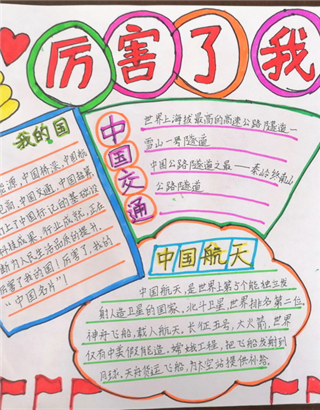 厉害了我
我的国
中国桥梁,中国航
中国交通,中国超算
打上了中国标记的基础设
科技成果,行业成就,正在
断为人民生活品质的提升.
厉害了我的国!厉害了,我的
“中国名片”!
中国交通
世界上海拔最高的高速公路隧道一
雪山一号隧道
中国公路隧道之最——秦岭终南山
公路隧道
中国航天
中国航天,是世界上第5个能独立发
射人造卫星的国家,北斗卫星,世界排名第二位.
神舟飞船,载人航天,长征五号,大火箭,世界
仅有中美俄能造.嫦娥工程,把飞船发射到
月球.天舟货运飞船,为太空站提供补给.